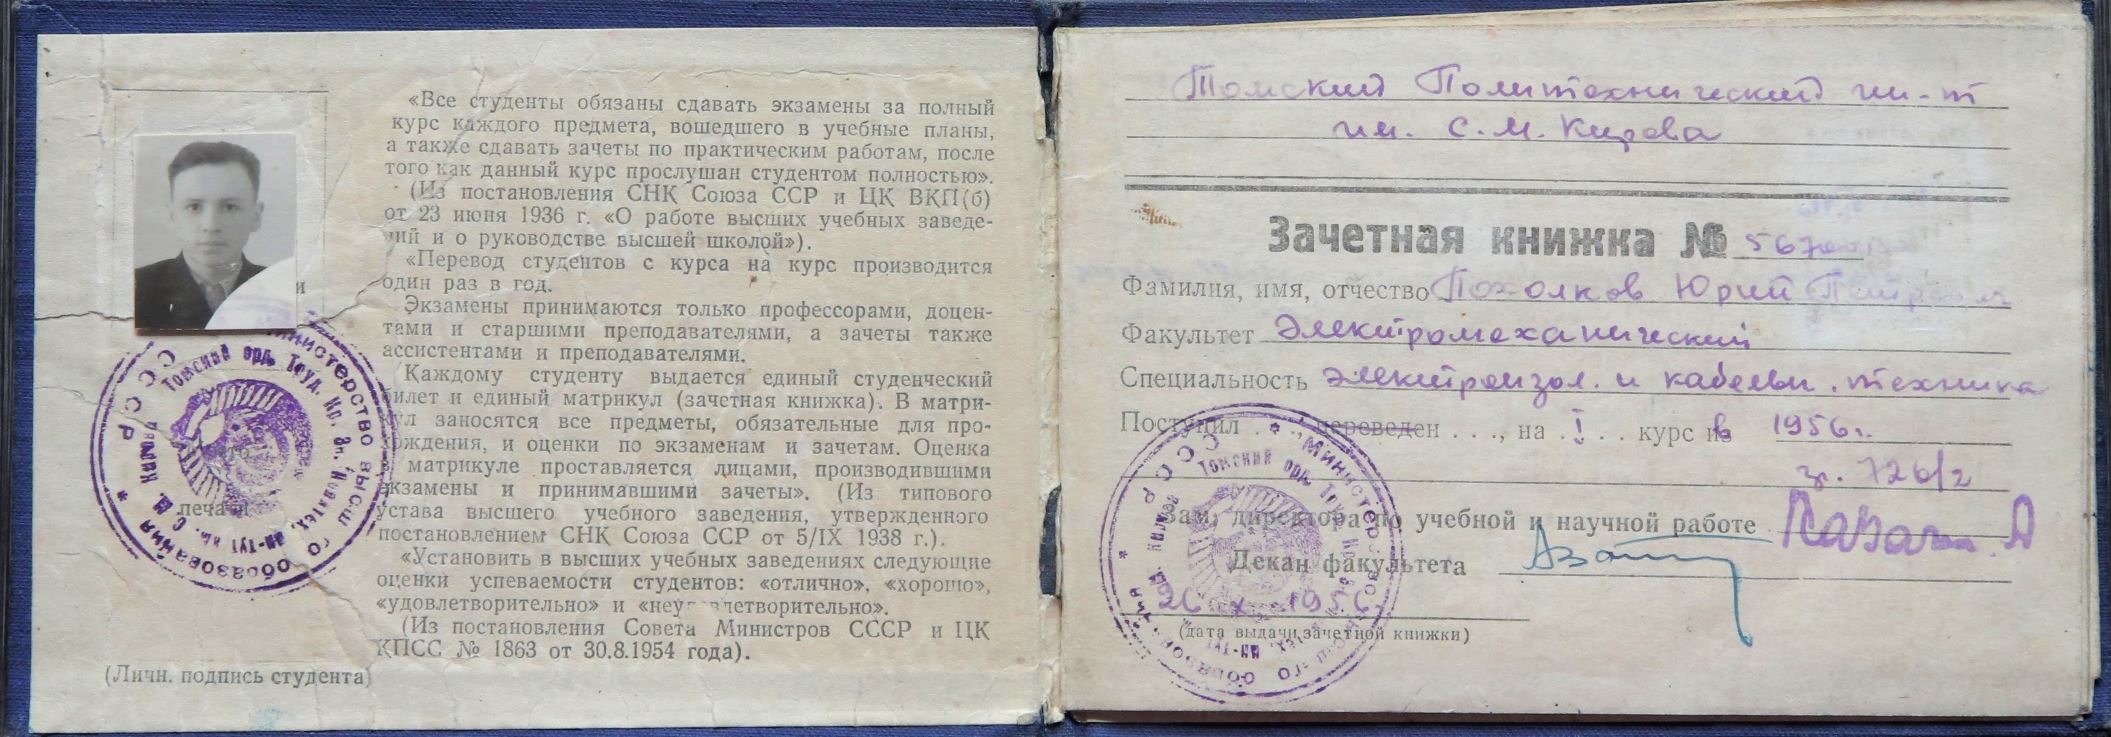 «Все студенты обязаны сдавать экзамены за полный
курс каждого предмета, вошедшего в учебные планы,
а также сдавать зачеты по практическим работам, после
того как данный курс прослушан студентом полностью».
(Из постановления СНК Союза ССР и ЦК ВКП(б)
от 23 июня 1936 г. «О работе высших учебных заведе-
ний и о руководстве высшей школой»).
«Перевод студентов с курса на курс производится
один раз в год.
Экзамены принимаются только профессорами, доцен-
тами и старшими преподавателями, а зачеты также
ассистентами и преподавателями.
Каждому студенту выдается единый студенческий
билет и единый матрикул (зачетная книжка). В матри-
кул заносятся все предметы, обязательные для про-
хождения, и оценки по экзаменам и зачетам. Оценка
в матрикуле проставляется лицами, производившими
экзамены и принимавшими зачеты». (Из типового
устава высшего учебного заведения, утвержденного
постановлением СНК Союза ССР от 5/IX 1938 г.).
«Установить в высших учебных заведениях следующие
оценки успеваемости студентов: «отлично», «хорошо»,
«удовлетворительно» и «неудовлетворительно».
(Из постановления Совета Министров СССР и ЦК
КПСС № 1863 от 30.8.1954 года).
печати
Министерство высшего образования СССР
Томский орд. Труд. Кр. Зн. Политех. ин-тут им. С. М. Кирова
(Личн. подпись студента)
Томский Политехнический ин-т
им. С.М. Кирова
Зачетная книжка №
Фамилия, имя, отчество Похолков Юрий Петрович
Факультет Электромеханический
Специальность Электроизол. и кабельн. техника
Поступил . . . переведен . . ., на . I . . курс в 1956г.
726/2
Зам. директора по учебной и научной работе
Декан факультета
26 X 1956
(дата выдачи зачетной книжки)
Министерство высшего образования СССР
Томский орд. Труд. Кр. ин-тут Кирова